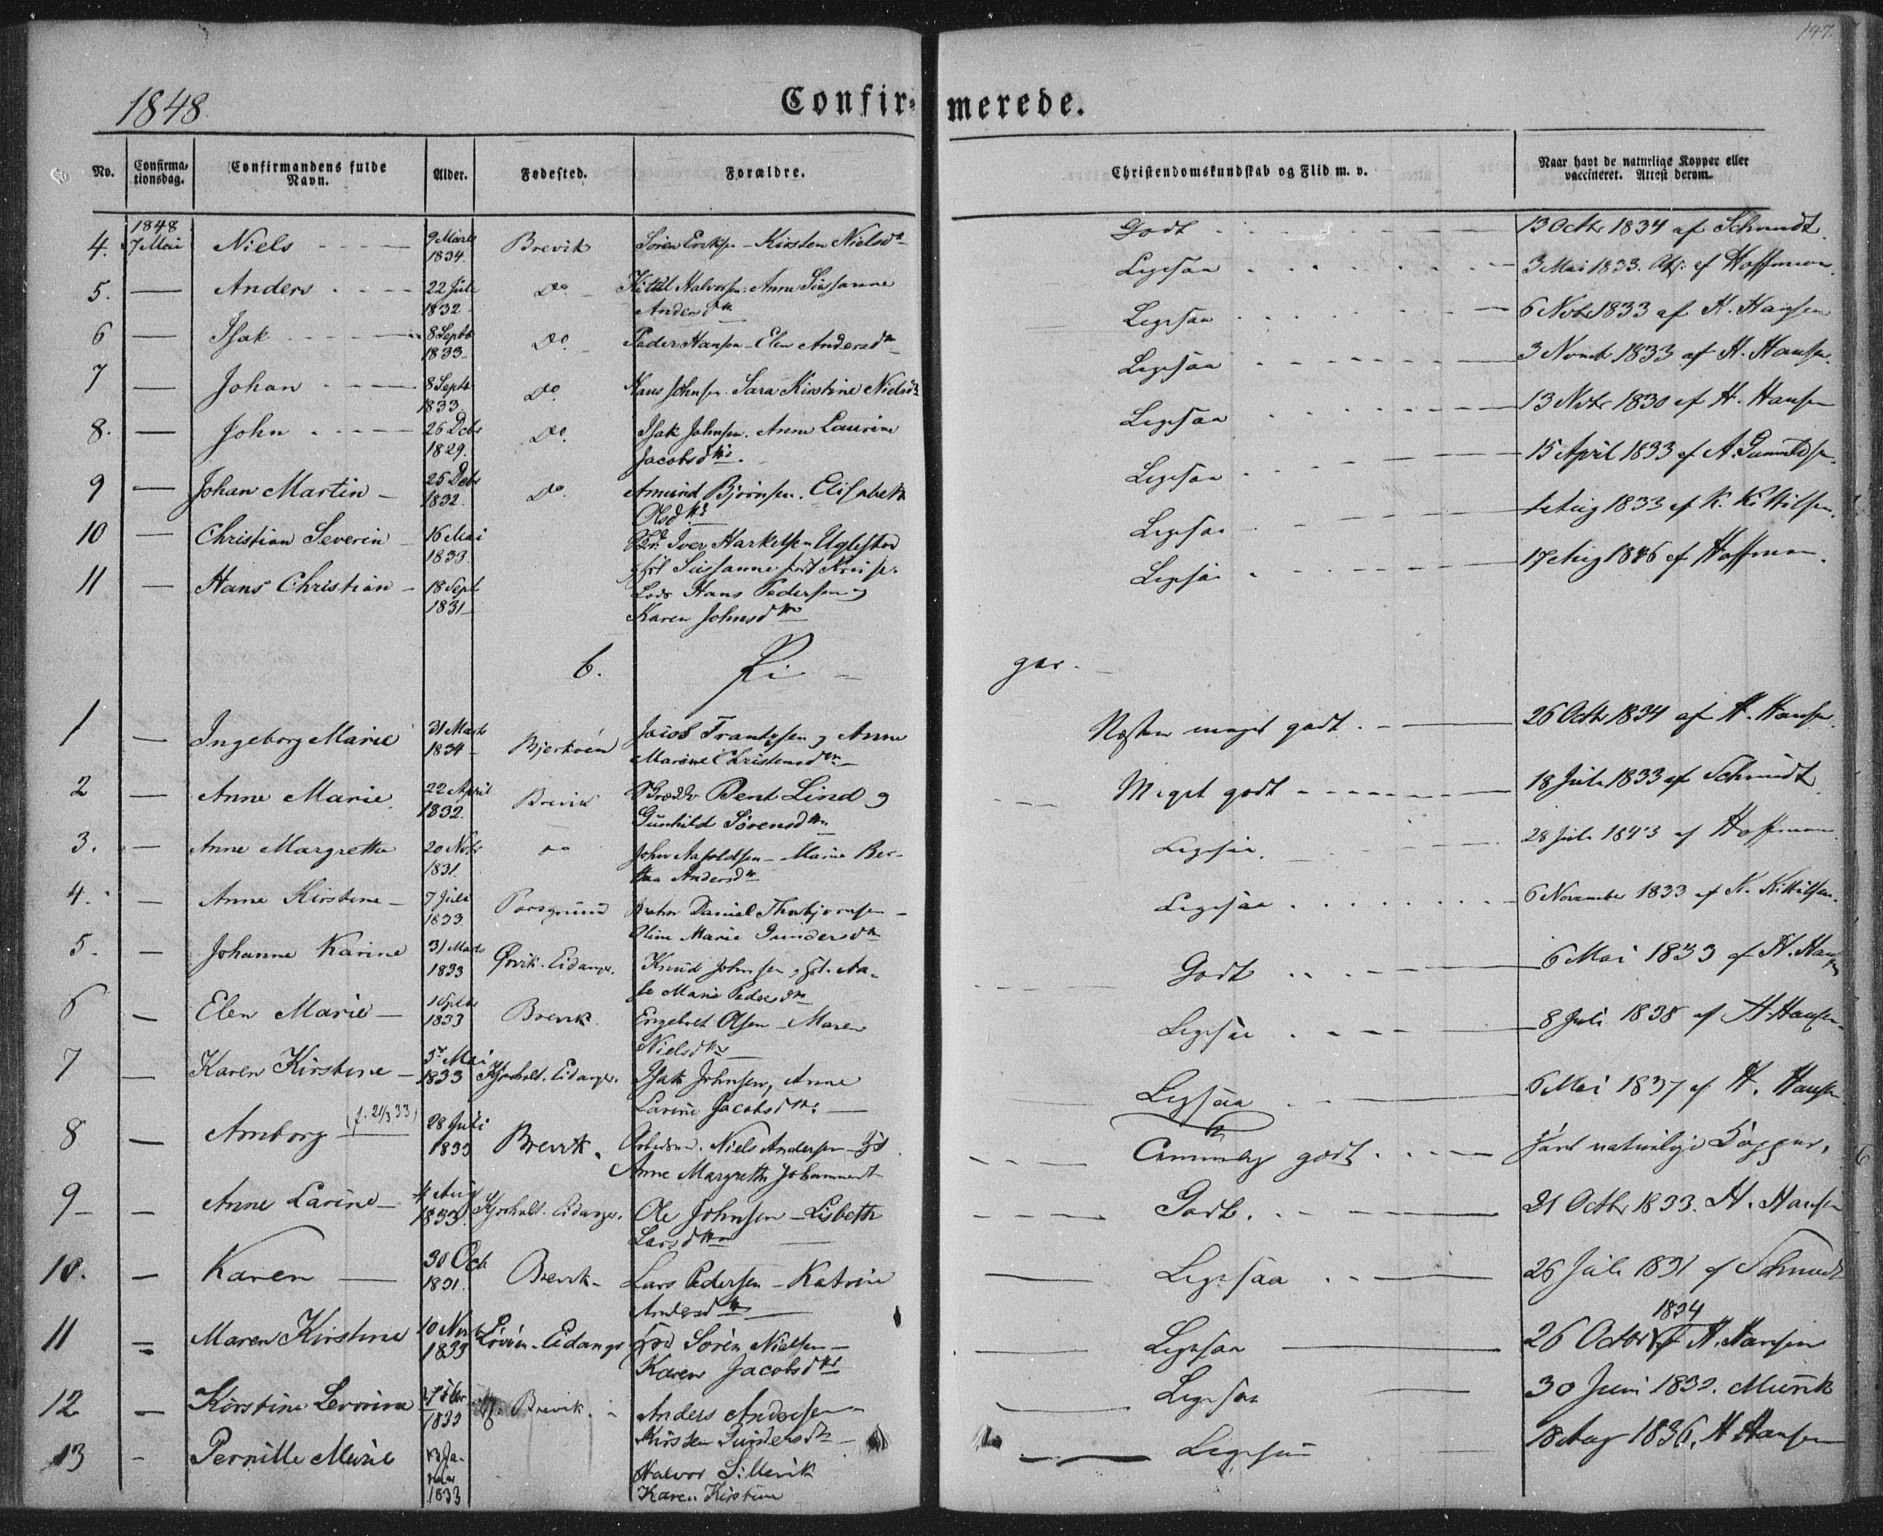 147.
1848
Confir- merede.
No. Confirma-tionsdag. Confirmandens fulde Navn. Alder. Fødested. Forældre. Christendomskundskab og Flid m. v. Naar havt de naturlige Kopper eller vaccineret. Attest derom.
4. 1848 7 Mai Niels 9 Marts 1834. Brevik Søren Ericks. - Kirsten Nielsdtr Godt 13 Octr 1834 af Schmidt.
5. Anders 22 Juli 1832 Do Kittil Halvorsen. Anne Susanne Andersdtr Ligesaa 3 Mai 1833. af Hoffman.
6 Isak 8 Septb 1833 Do. Peder Hansen - Elen Andersdtr Ligesaa 6 Novbr 1833 af H. Hansen
7 Johan 8 Septr 1833 Do. Hans Johnsen. Sara Kirstine Nielsdtr Ligesaa 3 Novbr 1833 af H. Hansen.
8. John 26 Decbr 1829. Do. Isak Johnsen. Anne Laurine Jacobsdtr. Ligesaa 13 Novbr 1830 af H. Hansen
9 Johan Martin 25 Debr 1832. Do. Amund Bjørnsen. Elisabeth Olsdtr Ligesaa 15 April 1833 af A. Gunuldsen.
10 Christian Severin 16 Mai 1833. Iver Harkelsen Uglestad Susanne Ligesaa Aug 1833 af K. Kittilsen.
11 Hans Christian 18 Sept 1831 Lods Hans Pedersen og Karen Johnsdtr Ligesaa 17 Aug 1846 af Hoffman.
6. Pi - ger.
1 Ingeborg Marie 31 Marts 1834 Bjerkøen Jacob Frantzsen og Anne Marine Christensdtr Næsten meget godt. 26 Octr 1834 af H. Hansen.
2 Anne Marie 22 April 1832. Brevik Bent Lind og Gunhild Sørensdtr Meget godt 18 Juli 1833 af Schmidt.
3. Anne Margrethe 20 Nobr 1831. Do John Aasoldsen - Marie Ber-thea Andersdtr Ligesaa. 28 Juli 1843 af Hoffman
4. Anne Kirstine 7 Juli 1833. Porsgrund Daniel Thorbjørnsen - Oline Marie Gundersdtr Ligesaa 6 November 1833 af K. Kittilsen.
5. Johanne Karine 31 Marts 1833 Ørvik. Eidanger. Knud Johnsen, Aa-se Marie Pedersdtr Godt 6 Mai 1833 af H. Hansen
6 Elen Marie 1 Septbr 1833 Brevik. Engebret Olsen - Maren Nielsdtr Ligesaa 8 Juli 1838 af H. Hansen
7 Karen Kirstine 5 Mai 1833 Kjørholt. Eidanger. Isak Johnsen, Anne Larine Jacobsdtr Ligesaa 6 Mai 1837 af H. Hansen
8 Amborg (f. 21/3 33) 28 Juli 1833 Brevik. Arbeidsm. Niels Andersen Anne Margrethe Johannesdt godt havt naturlige Kopper.
9 Anne Larine 4 Aug 1833. Kjørholt. Eidanger. Ole Johnsen - Lisbeth Larsdtr Godt. 21 Octbr 1833. H. Hansen
10. Karen 30 Oct 1831. Brevik Lars Pedersen - Katrine Andersdtr Ligesaa 26 Juli 1831 af Schmidt
11 Maren Kirstine 10 Novb 1833 Eidanger Søren Nielsen - Karen Jacobsdtr Ligesaa 26 Octbr 1834 af H. Hansen
12 Kirstine Severine 1833 Brevik. Anders Andersen Kirsten Gundersdtr Ligesaa 30 Juni 1833. Munk
13 Pernille Marie 13 Ja-nuar 1833 Halvor S. Mevik Karen Kirstine Ligesaa 18 Aug 1836. H. Hansen